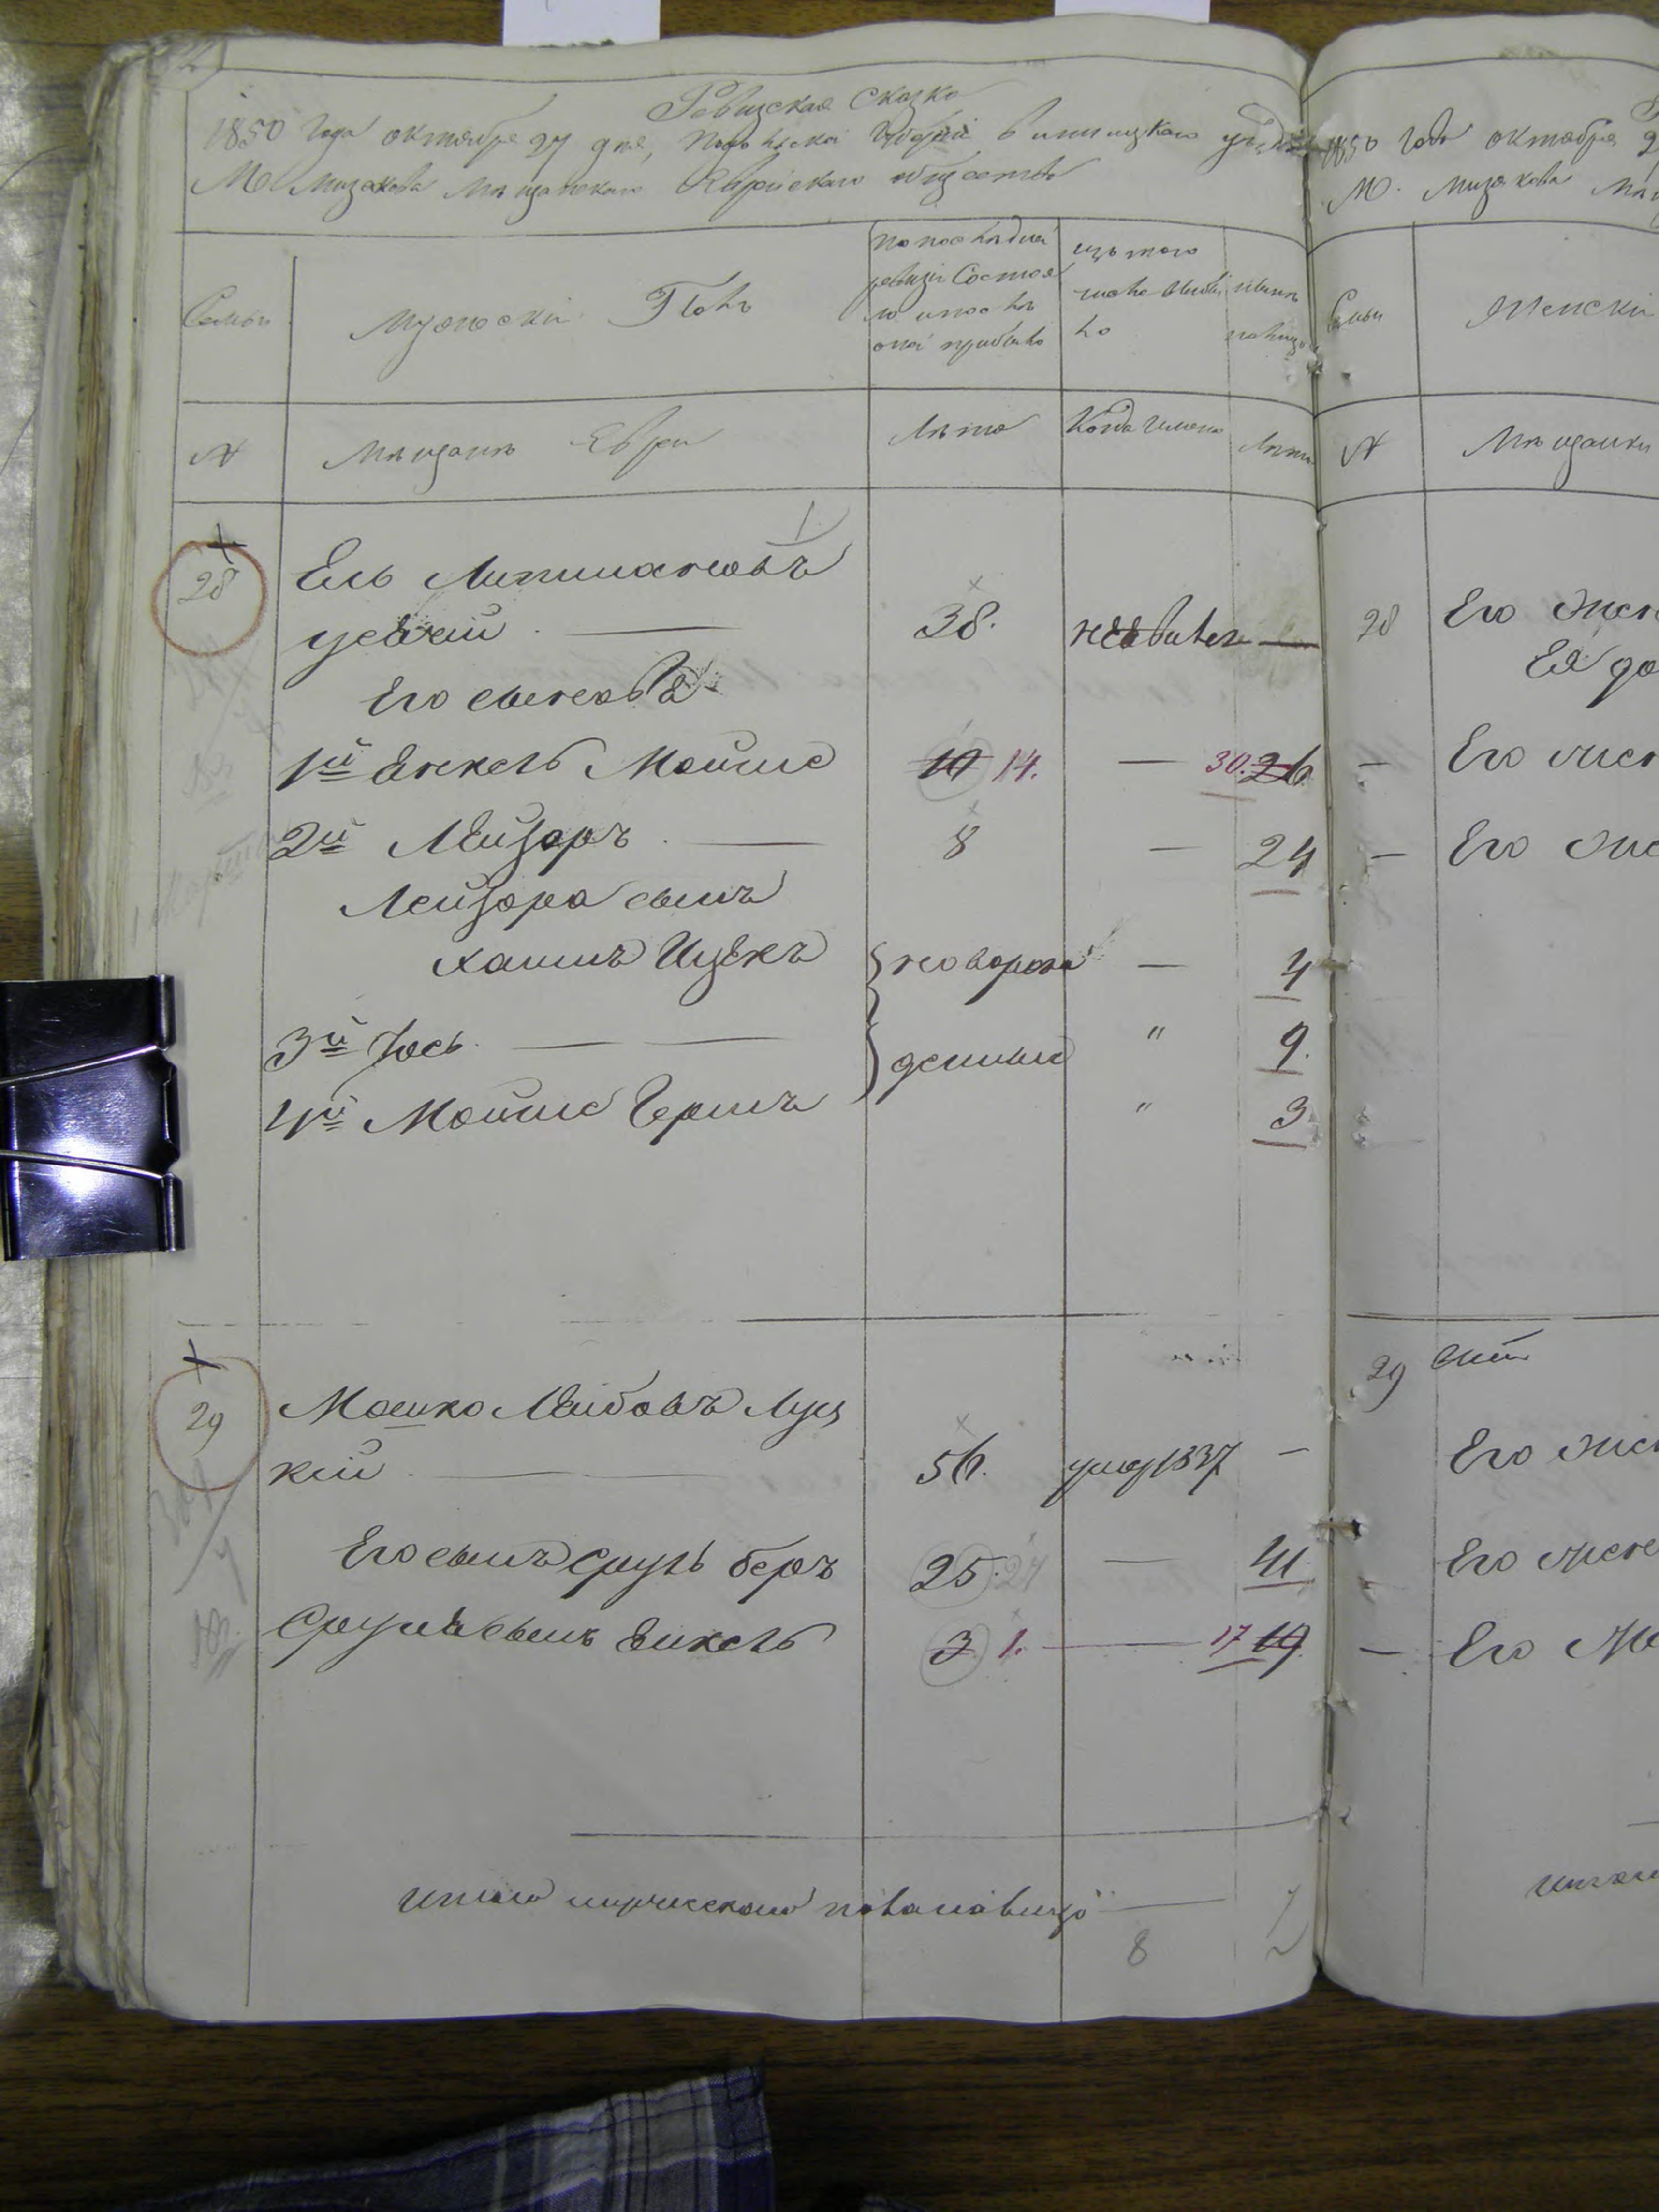 Ревизская Сказка
1850 Года октября 27 дня, Подольской Губернии винницкаго уѣзда
М Мизякова Мѣщанскаго Еврейскаго общества
Семьи
Мужескій Полъ
по последней
ревизіи Состоя
ло и после
оной прибыло
изъ того
числа выбы
ло
нынѣ
на лицо
№
Мѣщанѣ Евреи
Лѣта
Когда именно
Лѣта
28
Ель
38.
Его сыновья
1й Янкель Мошко
10 14.
—
30. 26
2й Лейзоръ
8
—
24
Лейзора сынъ
Хаимъ Ицекъ
новорож
—
4
3й Іось
денные
"
9.
4й Мошко Гершъ
"
3
29
Мошко Лейбовъ Луц
кій
56.
умер 1837
—
Его сынъ Сруль беръ
25. 24
—
41
Сруля сынъ Янкель
3 1.
17 19
Итого мужескаго пола на лицо
7
8
1850 Года октября 2
М. Мизякова Мѣщ
Семьи
Женскій
№
Мѣщанки
28
Его жен
Ея до
— Его жен
— Его же
29
Его жен
Его жене
— Его же
Итого